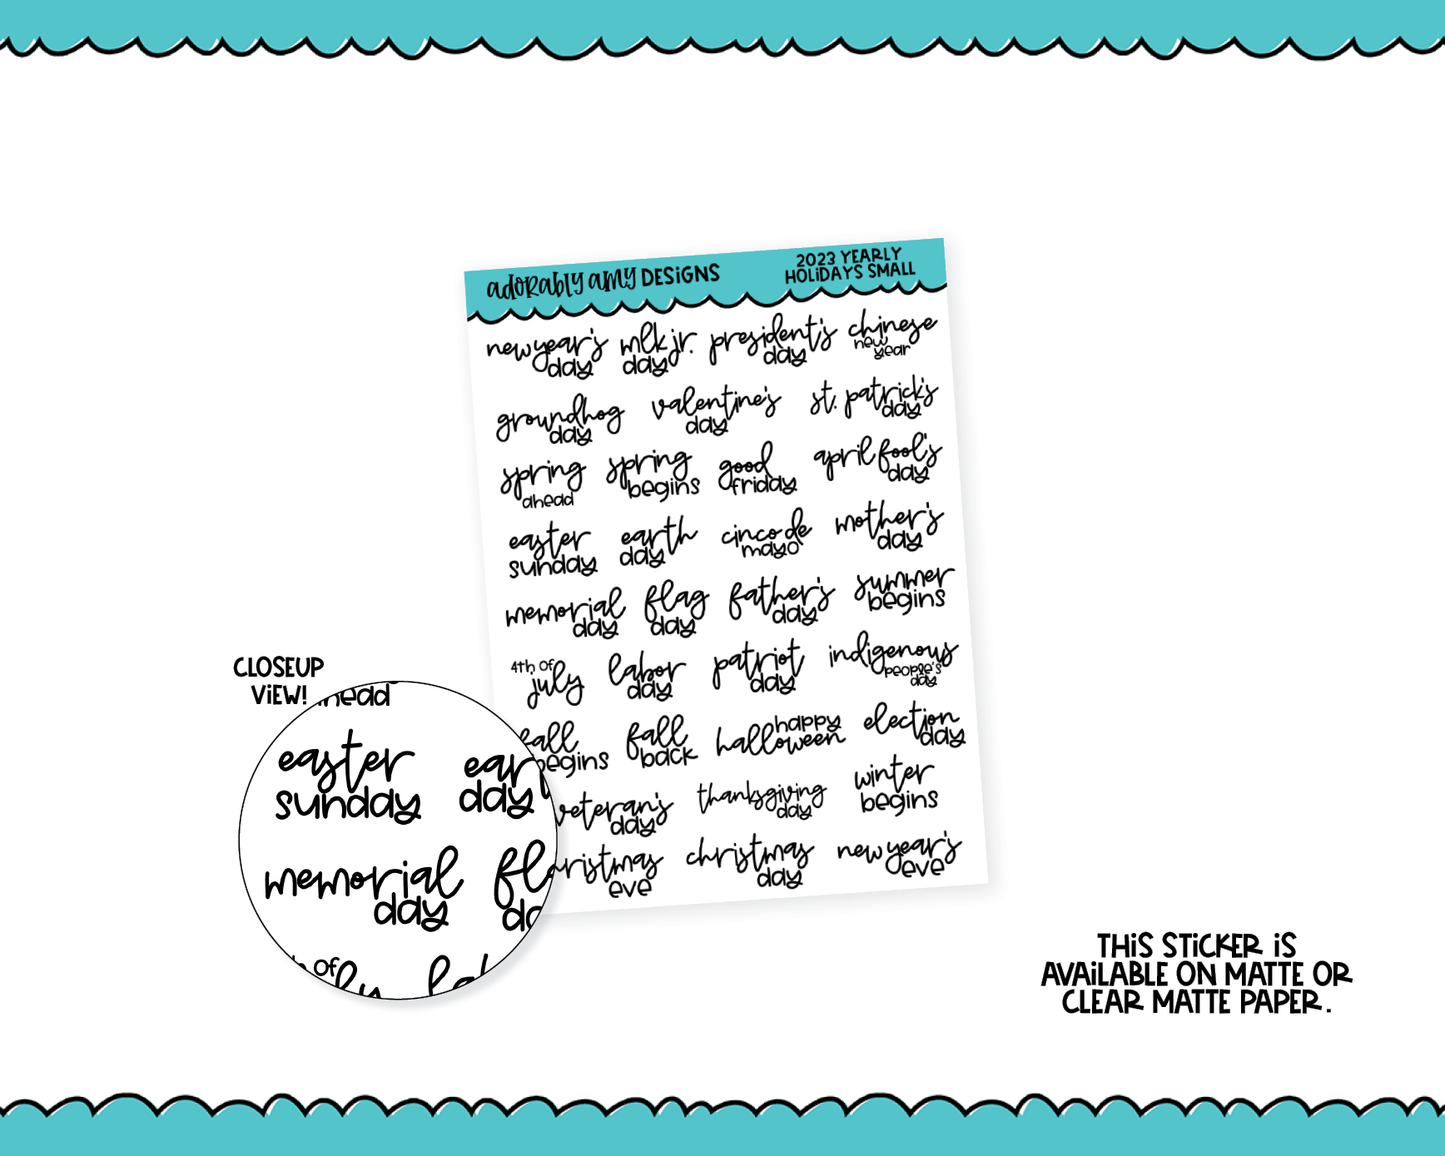 adorably amy DESiGNS
2023 YEARLY
HOLiDAYS SMALL
new year's day
mlk jr. day
president's day
chinese new year
groundhog day
valentine's day
st. patrick's day
spring ahead
spring begins
good friday
april fool's day
easter sunday
earth day
cinco de mayo
mother's day
memorial day
flag day
father's day
summer begins
4th of july
labor day
patriot day
indigenous people's day
fall begins
fall back
happy halloween
election day
veteran's day
thanksgiving day
winter begins
christmas eve
christmas day
new year's eve
CLOSEUP
ViEW!
head
easter
sunday
ear
day
memorial
day
fl
d
of
ly
THiS STiCKER iS
AVAiLABLE ON MATTE OR
CLEAR MATTE PAPER.